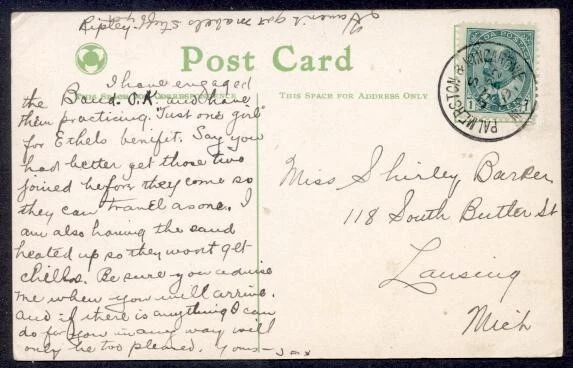 Ripley
Haven't got Mabels Stuff yet
Post Card
THIS SPACE FOR ADDRESS ONLY
I have engaged
the Band O.K. and have
them practicing "Just one girl"
for Ethels benifit. Say you
had better get those two
joined before they come so
they can travel as one. I
am also having the sand
heated up so they wont get
chills. Be sure you advise
me when you will arrive.
and if there is anything I can
do for you in any way will
only be too pleased. Yours - Jax
CANADA POSTAGE
1
PALMERSTON & KINCARDINE
Miss Shirley Barker
118 South Butler St
Lansing
Mich